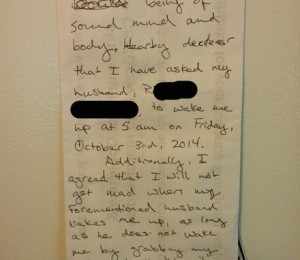 being of
sound mind and
body, Hearby decrees
that I have asked my
husband, R
to wake me
up at 5 am on Friday,
October 3rd, 2014.
Additionally, I
agread that I will not
get mad when my
forementioned husband
wakes me up, as long
as he does not wake
me by grabbing my